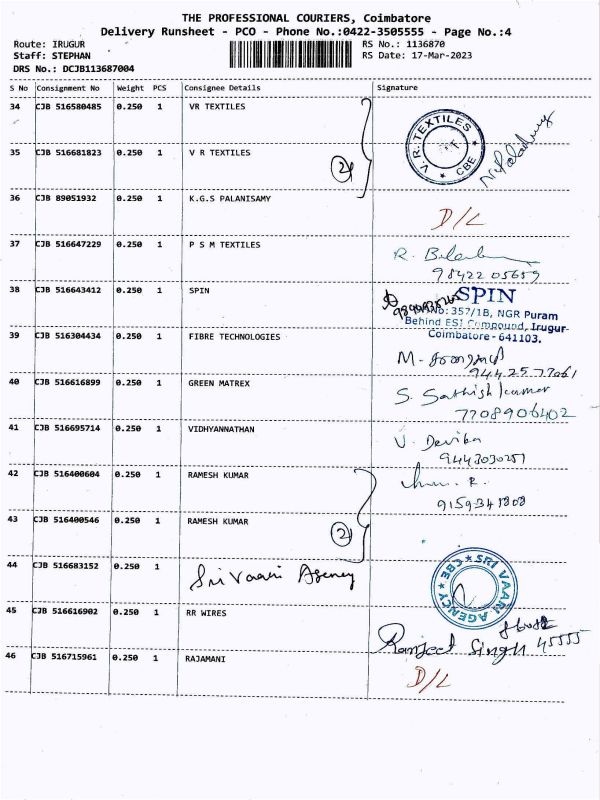 THE PROFESSIONAL COURIERS, Coimbatore
Delivery Runsheet - PCO - Phone No.:0422-3505555 - Page No.:4
Route: IRUGUR RS No.: 1136870
Staff: STEPHAN RS Date: 17-Mar-2023
DRS No.: DCJB113687004
S No Consignment No Weight PCS Consignee Details Signature
34 CJB 516580485 0.250 1 VR TEXTILES
V.R.TEXTILES CBE
35 CJB 516681823 0.250 1 V R TEXTILES
2
36 CJB 89051932 0.250 1 K.G.S PALANISAMY D/L
37 CJB 516647229 0.250 1 P S M TEXTILES R.
98422 05659
38 CJB 516643412 0.250 1 SPIN SPIN
357/1B, NGR Puram
Behind ESI Compound, Irugur-
Coimbatore - 641103.
39 CJB 516304434 0.250 1 FIBRE TECHNOLOGIES M.
94425 77061
40 CJB 516616899 0.250 1 GREEN MATREX S. Sathish kumar
7708906402
41 CJB 516695714 0.250 1 VIDHYANNATHAN V. Devika
9443030251
42 CJB 516400604 0.250 1 RAMESH KUMAR R.
9159341808
43 CJB 516400546 0.250 1 RAMESH KUMAR
2
44 CJB 516683152 0.250 1 Sri Vaari Agency SRI VAARI AGENCY CBE
45 CJB 516616902 0.250 1 RR WIRES Ranjeet Singh 45555
46 CJB 516715961 0.250 1 RAJAMANI D/L